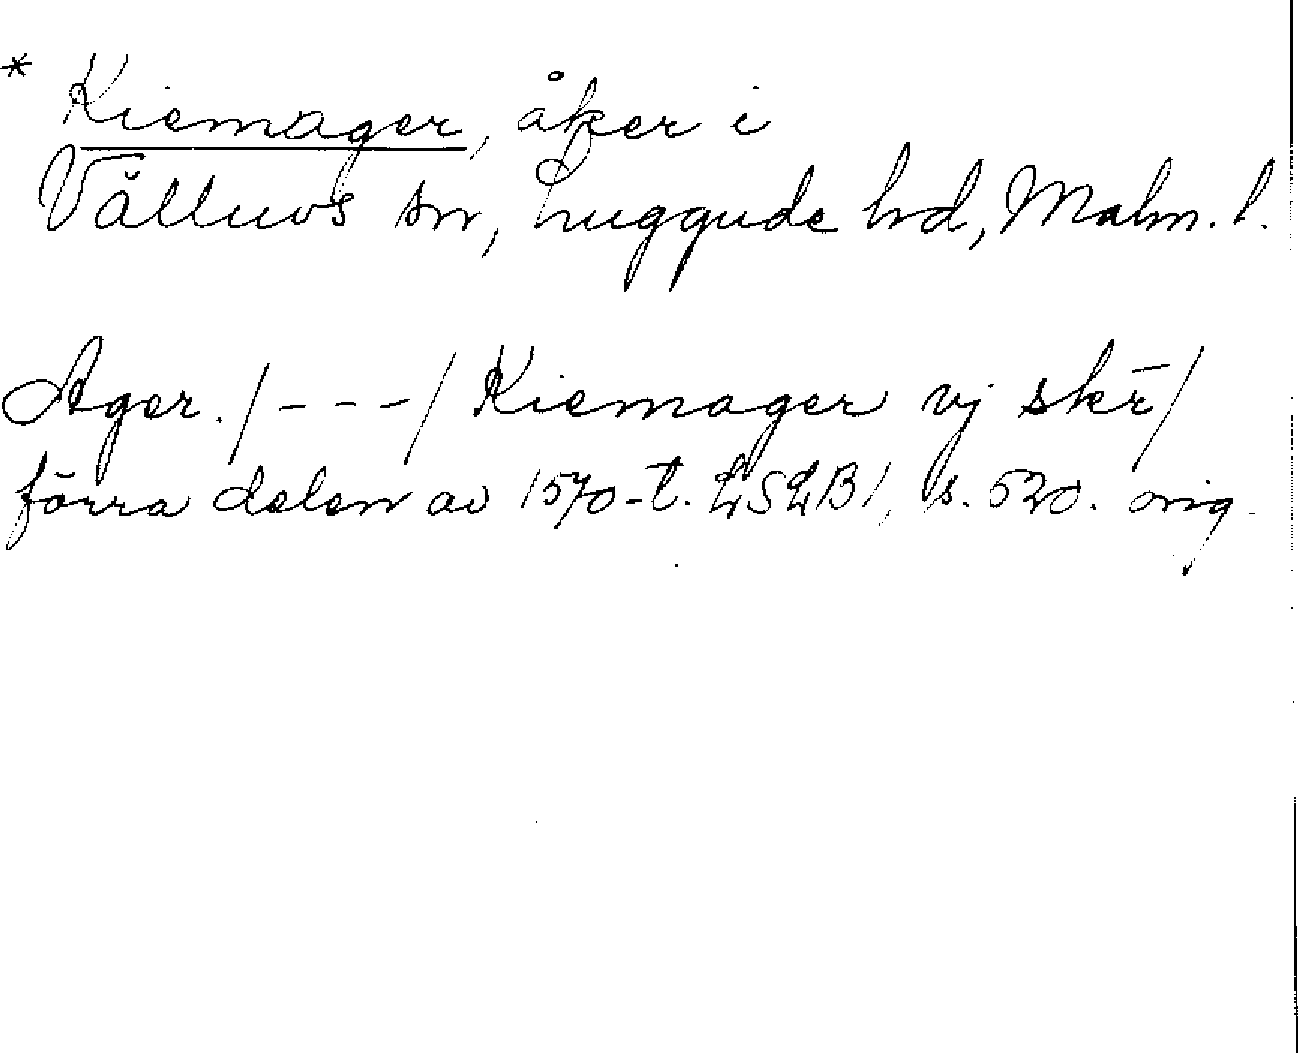 * Kiemager, åker i
Välluvs sn, Luggude hd, Malm. l.
Ager. /---/ Kiemager vj skr̄/
förra delen av 1570-t. LSLB1, s. 520. orig.